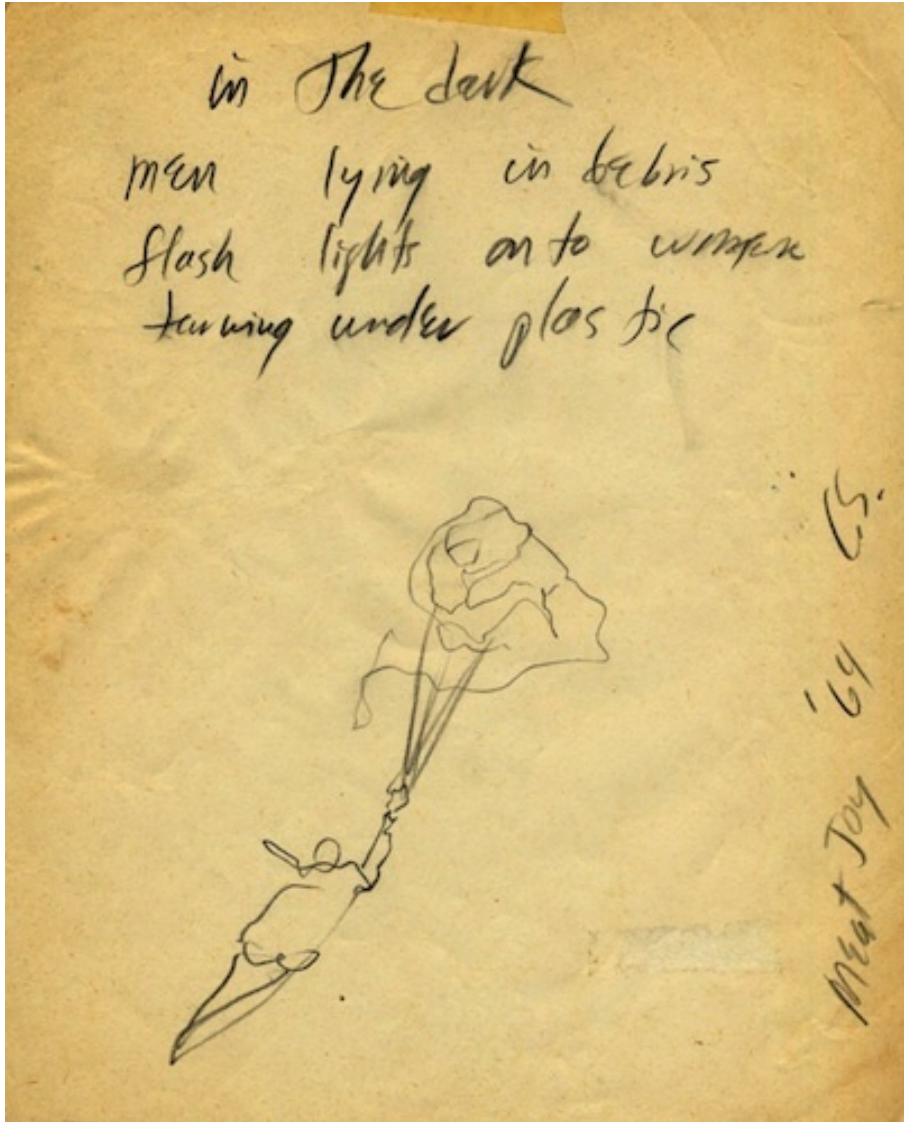 in The dark
men lying in debris
flash lights onto women
turning under plastic
Meat Joy '64 CS.